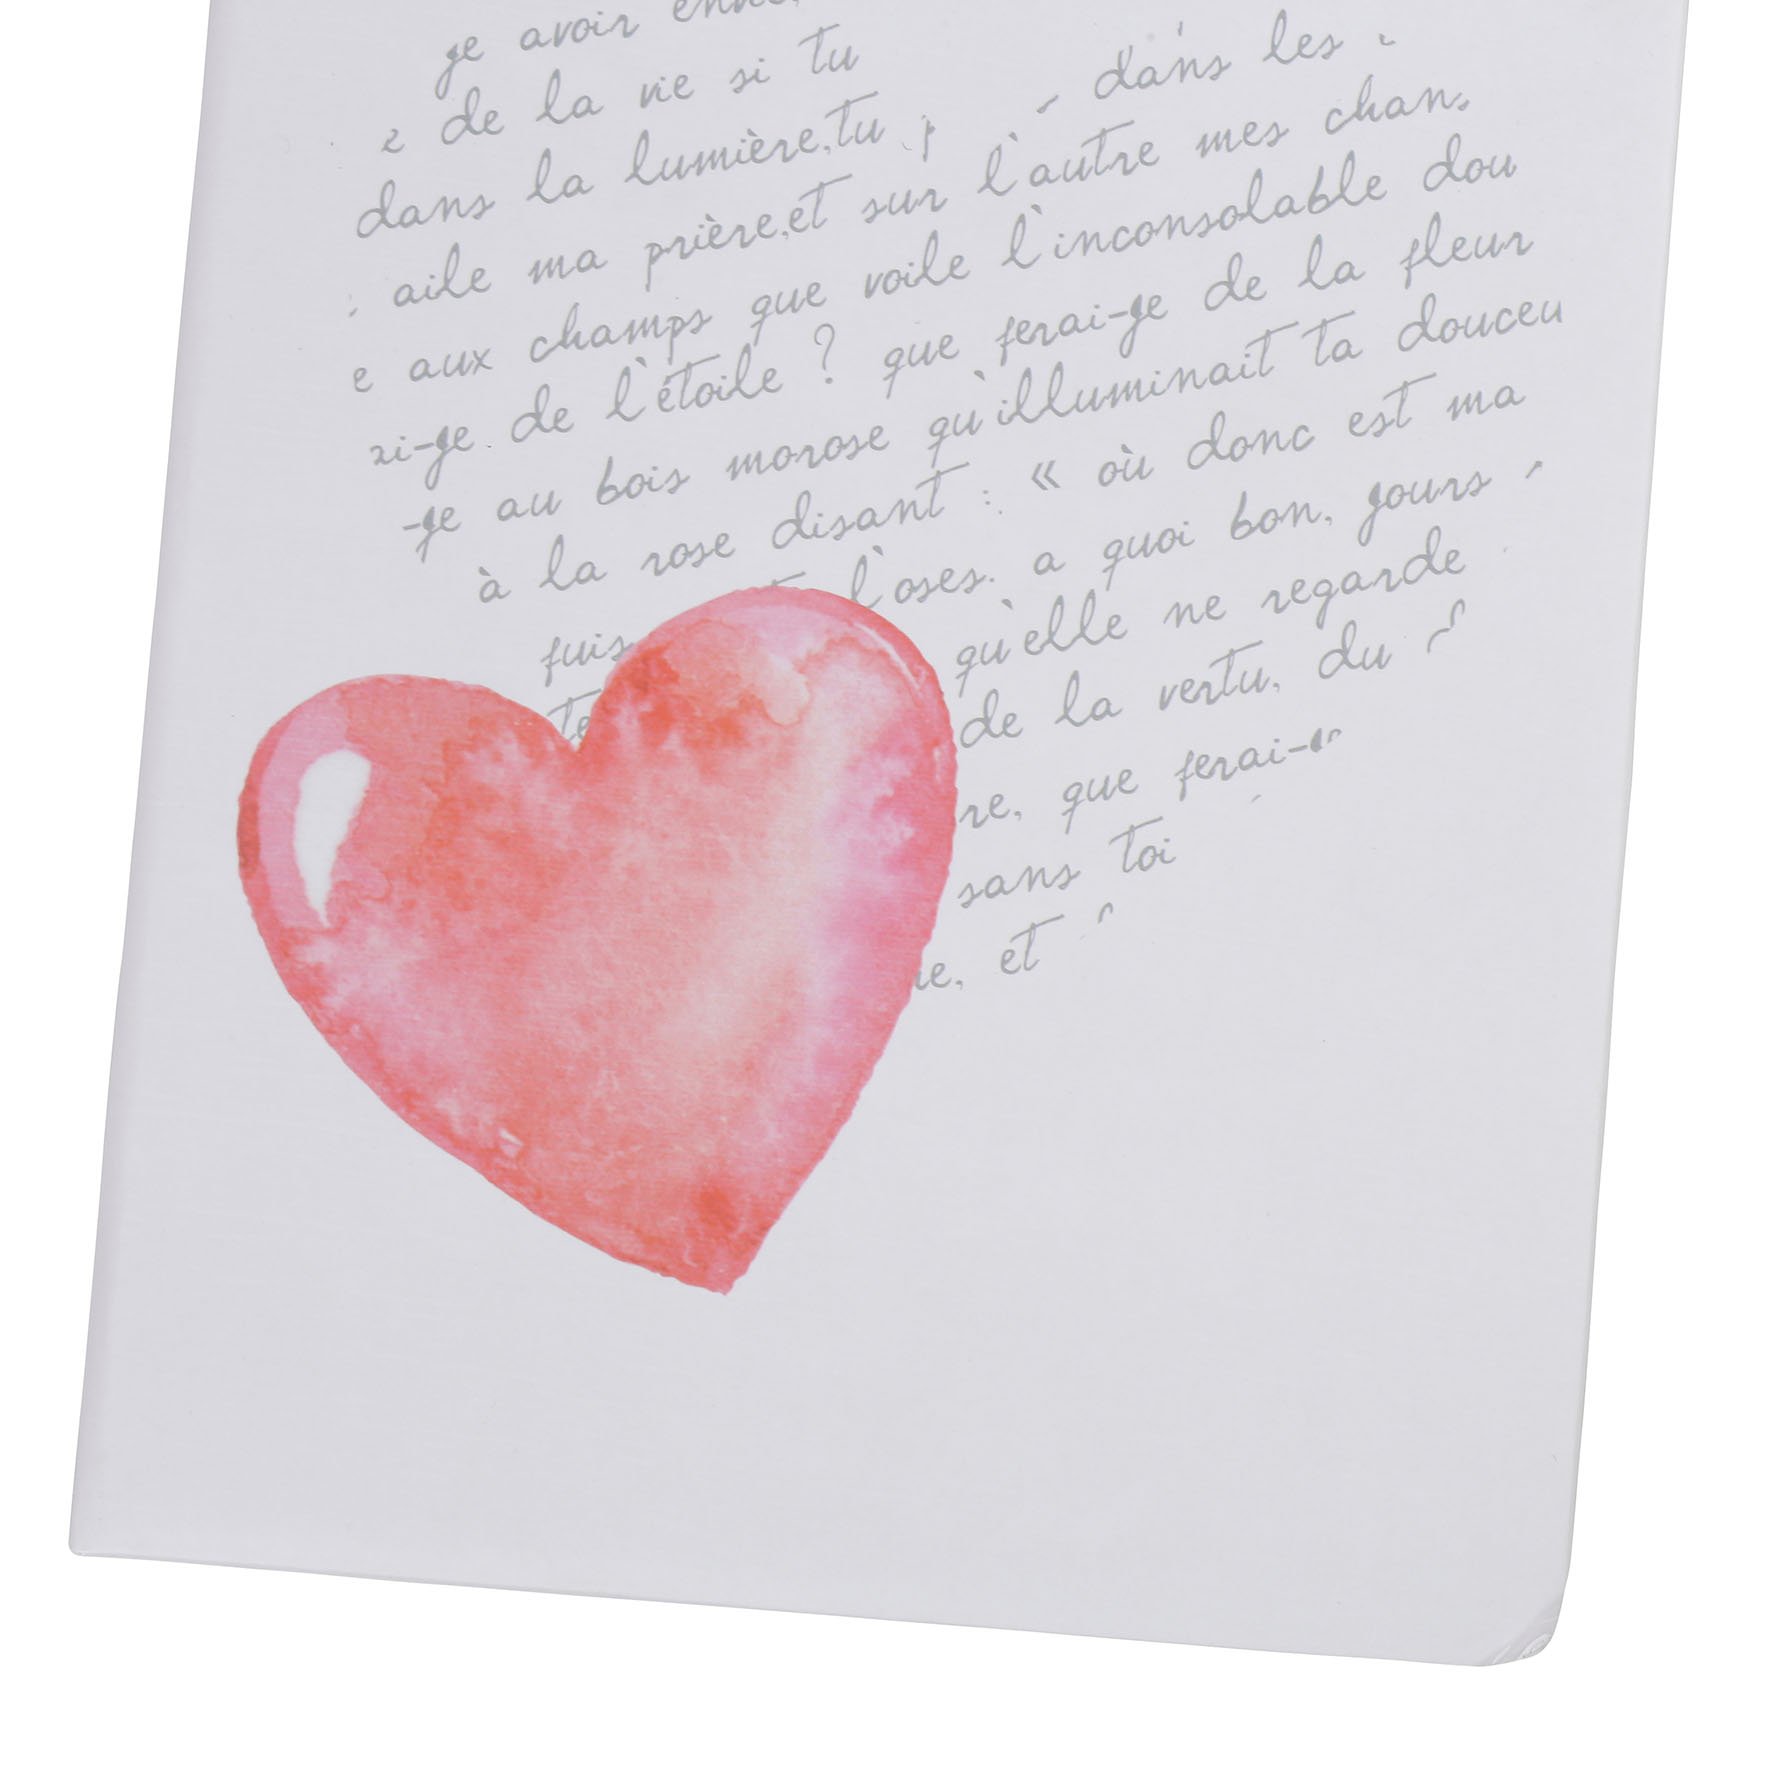 je avoir
de la vie si tu
dans la lumière,tu dans les
aile ma prière,et sur l'autre mes chan
e aux champs que voile l'inconsolable dou
ai-je de l'étoile ? que ferai-je de la fleur
-je au bois morose qu'illuminait ta douceu
à la rose disant : « où donc est ma
fuis l'oses. a quoi bon, jours
te qu'elle ne regarde
de la vertu, du
re, que ferai-
sans toi
ie, et